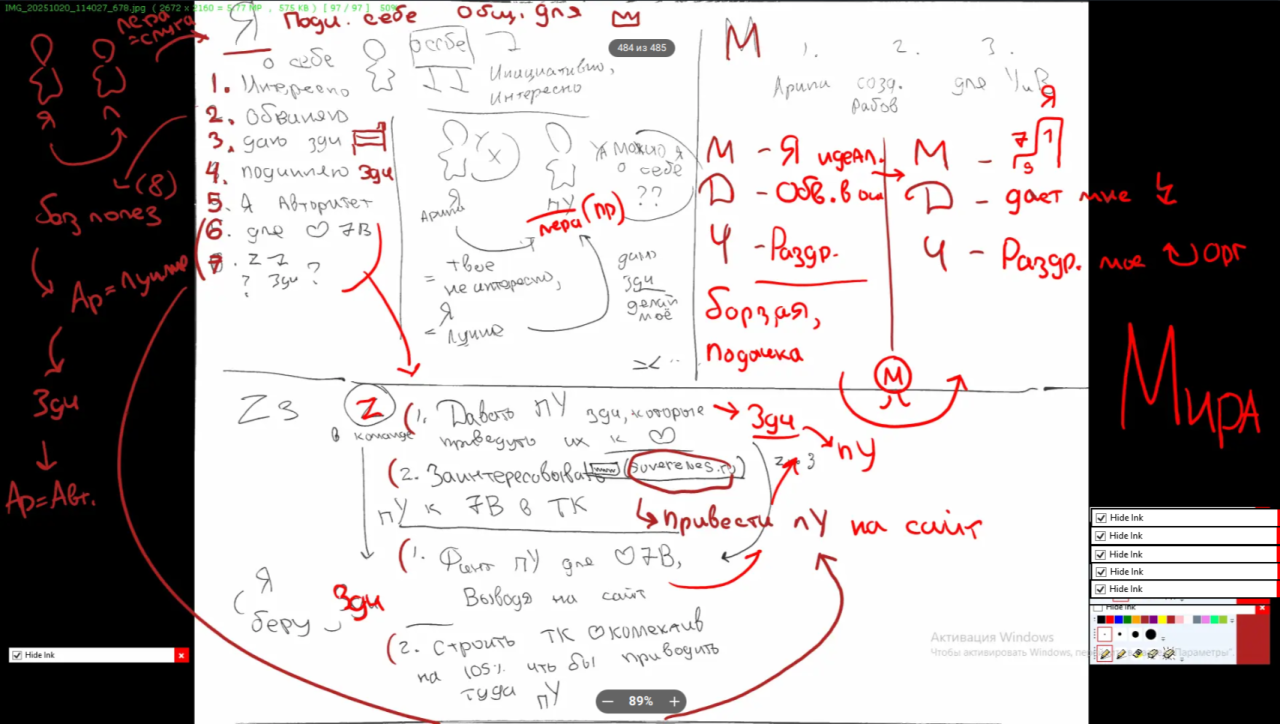 IMG_20251020_114027_678.jpg ( 2672 x 2160 = 5.77 MP , 575 KB ) [ 97 / 97 ] 50%
484 из 485
Я Подч. себе общ. для
пера
=слуга
Я Л
(8)
боз полез
Ар=Лучше
Зди
Ар=Авт.
о себе
1. Интересно
2. Обвиняю
3. даю зди
4. подчиняю Зди
5. Я Авторитет
6. для ♡ 7В
7. Z-Z
? Зди ?
о себе
Инициативно,
интересно
Я
Арипа
ПУ
пера (пр)
А можно я
о себе
??
= твое
не интересно,
Я
= Лучше
даю
зди
делай
моё
М 1. 2. 3.
Арипа созд. для УиВ
рабов
М - Я идеал.
Д - Обв. в ош
Ч - Раздр.
борзая,
подачка
Я
М - 7 1
9
Д - дает мне
Ч - Раздр. мое орг
М
Мира
Z3
Z
в команде
(1. Давать ПУ зди, которые
приведут их к ♡
Зди
ПУ
(2. Заинтересовывать www (suverenes.ru)
ПУ к 7В в ТК
Привести ПУ на сайт
(1. Фант ПУ для ♡ 7В,
Выводя на сайт
Я
беру
Зди
(2. Строить ТК ♡ комектив
на 105% что бы приводить
туда ПУ
89%
Hide Ink
Hide Ink
Hide Ink
Hide Ink
Hide Ink
Hide Ink
Hide Ink
Активация Windows